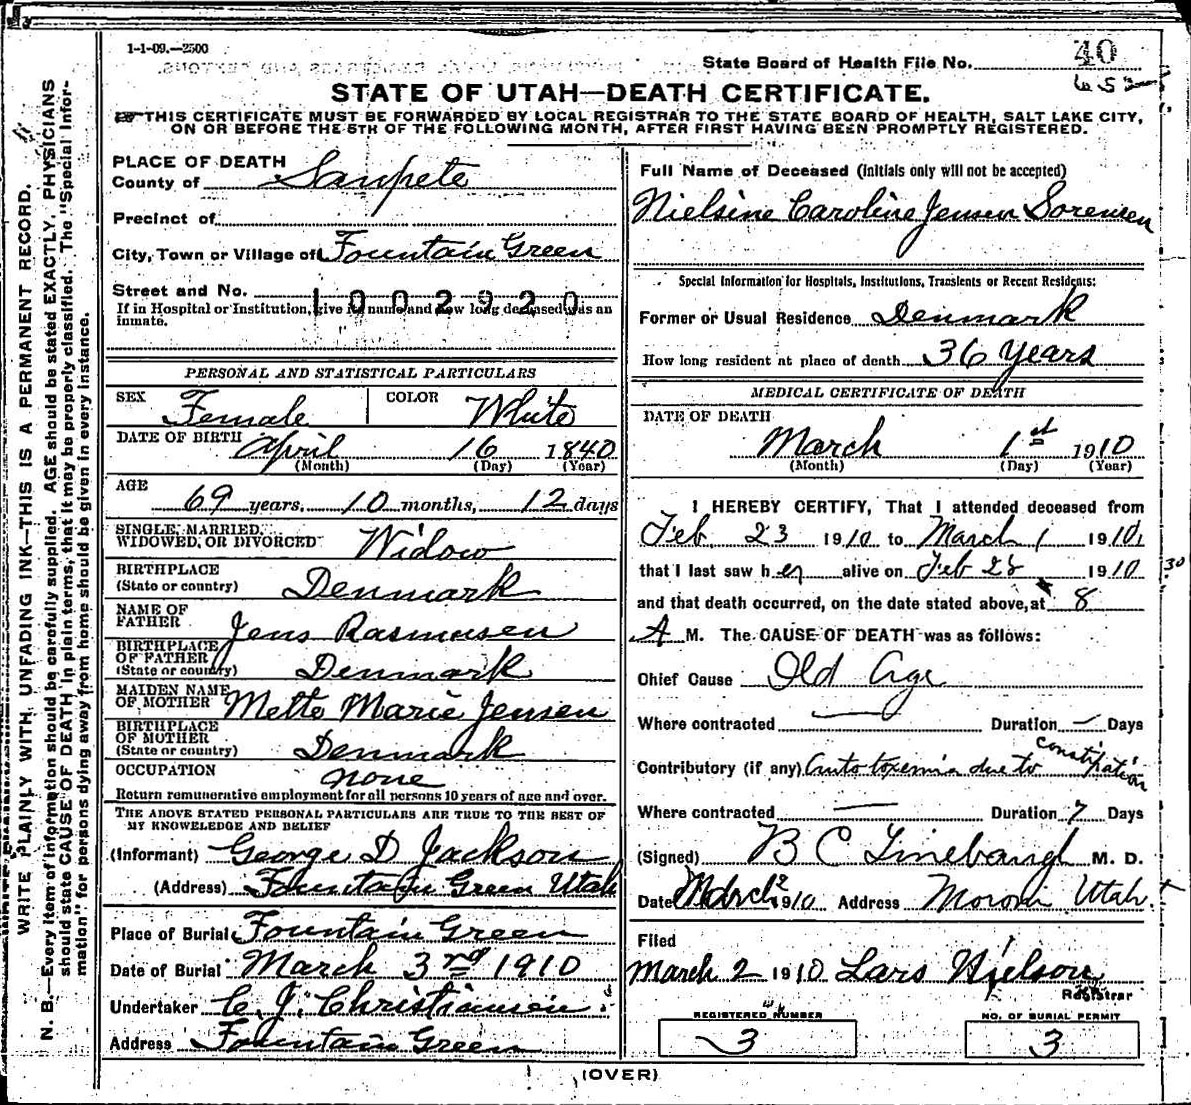 1-1-09.—2500
State Board of Health File No. 40
653
STATE OF UTAH—DEATH CERTIFICATE.
THIS CERTIFICATE MUST BE FORWARDED BY LOCAL REGISTRAR TO THE STATE BOARD OF HEALTH, SALT LAKE CITY,
ON OR BEFORE THE 5TH OF THE FOLLOWING MONTH, AFTER FIRST HAVING BEEN PROMPTLY REGISTERED.
WRITE PLAINLY WITH UNFADING INK—THIS IS A PERMANENT RECORD.
N. B.—Every item of information should be carefully supplied. AGE should be stated EXACTLY. PHYSICIANS
should state CAUSE OF DEATH in plain terms, that it may be properly classified. The "Special Infor-
mation" for persons dying away from home should be given in every instance.
PLACE OF DEATH
County of Sanpete
Precinct of
City, Town or Village of Fountain Green
Street and No.
1002920
If in Hospital or Institution, give its name and how long deceased was an
inmate.
PERSONAL AND STATISTICAL PARTICULARS
SEX Female COLOR White
DATE OF BIRTH April 16 1840
(Month) (Day) (Year)
AGE
69 years, 10 months, 12 days
SINGLE, MARRIED,
WIDOWED, OR DIVORCED Widow
BIRTHPLACE
(State or country) Denmark
NAME OF
FATHER Jens Rasmussen
BIRTHPLACE
OF FATHER
(State or country) Denmark
MAIDEN NAME
OF MOTHER Mette Marie Jensen
BIRTHPLACE
OF MOTHER
(State or country) Denmark
OCCUPATION none
Return remunerative employment for all persons 10 years of age and over.
THE ABOVE STATED PERSONAL PARTICULARS ARE TRUE TO THE BEST OF
MY KNOWLEDGE AND BELIEF
(Informant) George D Jackson
(Address) Fountain Green Utah
Place of Burial Fountain Green
Date of Burial March 3rd 1910
Undertaker C. J. Christiansen
Address Fountain Green
Full Name of Deceased (initials only will not be accepted)
Nielsine Caroline Jensen Sorensen
Special Information for Hospitals, Institutions, Transients or Recent Residents:
Former or Usual Residence Denmark
How long resident at place of death 36 Years
MEDICAL CERTIFICATE OF DEATH
DATE OF DEATH
March 1st 1910
(Month) (Day) (Year)
I HEREBY CERTIFY, That I attended deceased from
Feb. 23 1910 to March 1 1910,
that I last saw her alive on Feb 28 1910
and that death occurred, on the date stated above, at 8 30
A M. The CAUSE OF DEATH was as follows:
Chief Cause Old Age
Where contracted — Duration — Days
Contributory (if any) Auto toxemia due to constipation
Where contracted — Duration 7 Days
(Signed) B C Linebaugh M. D.
Date March 2 1910 Address Moroni Utah.
Filed
March 2 1910 Lars Nielson
Registrar
REGISTERED NUMBER
3
NO. OF BURIAL PERMIT
3
(OVER)